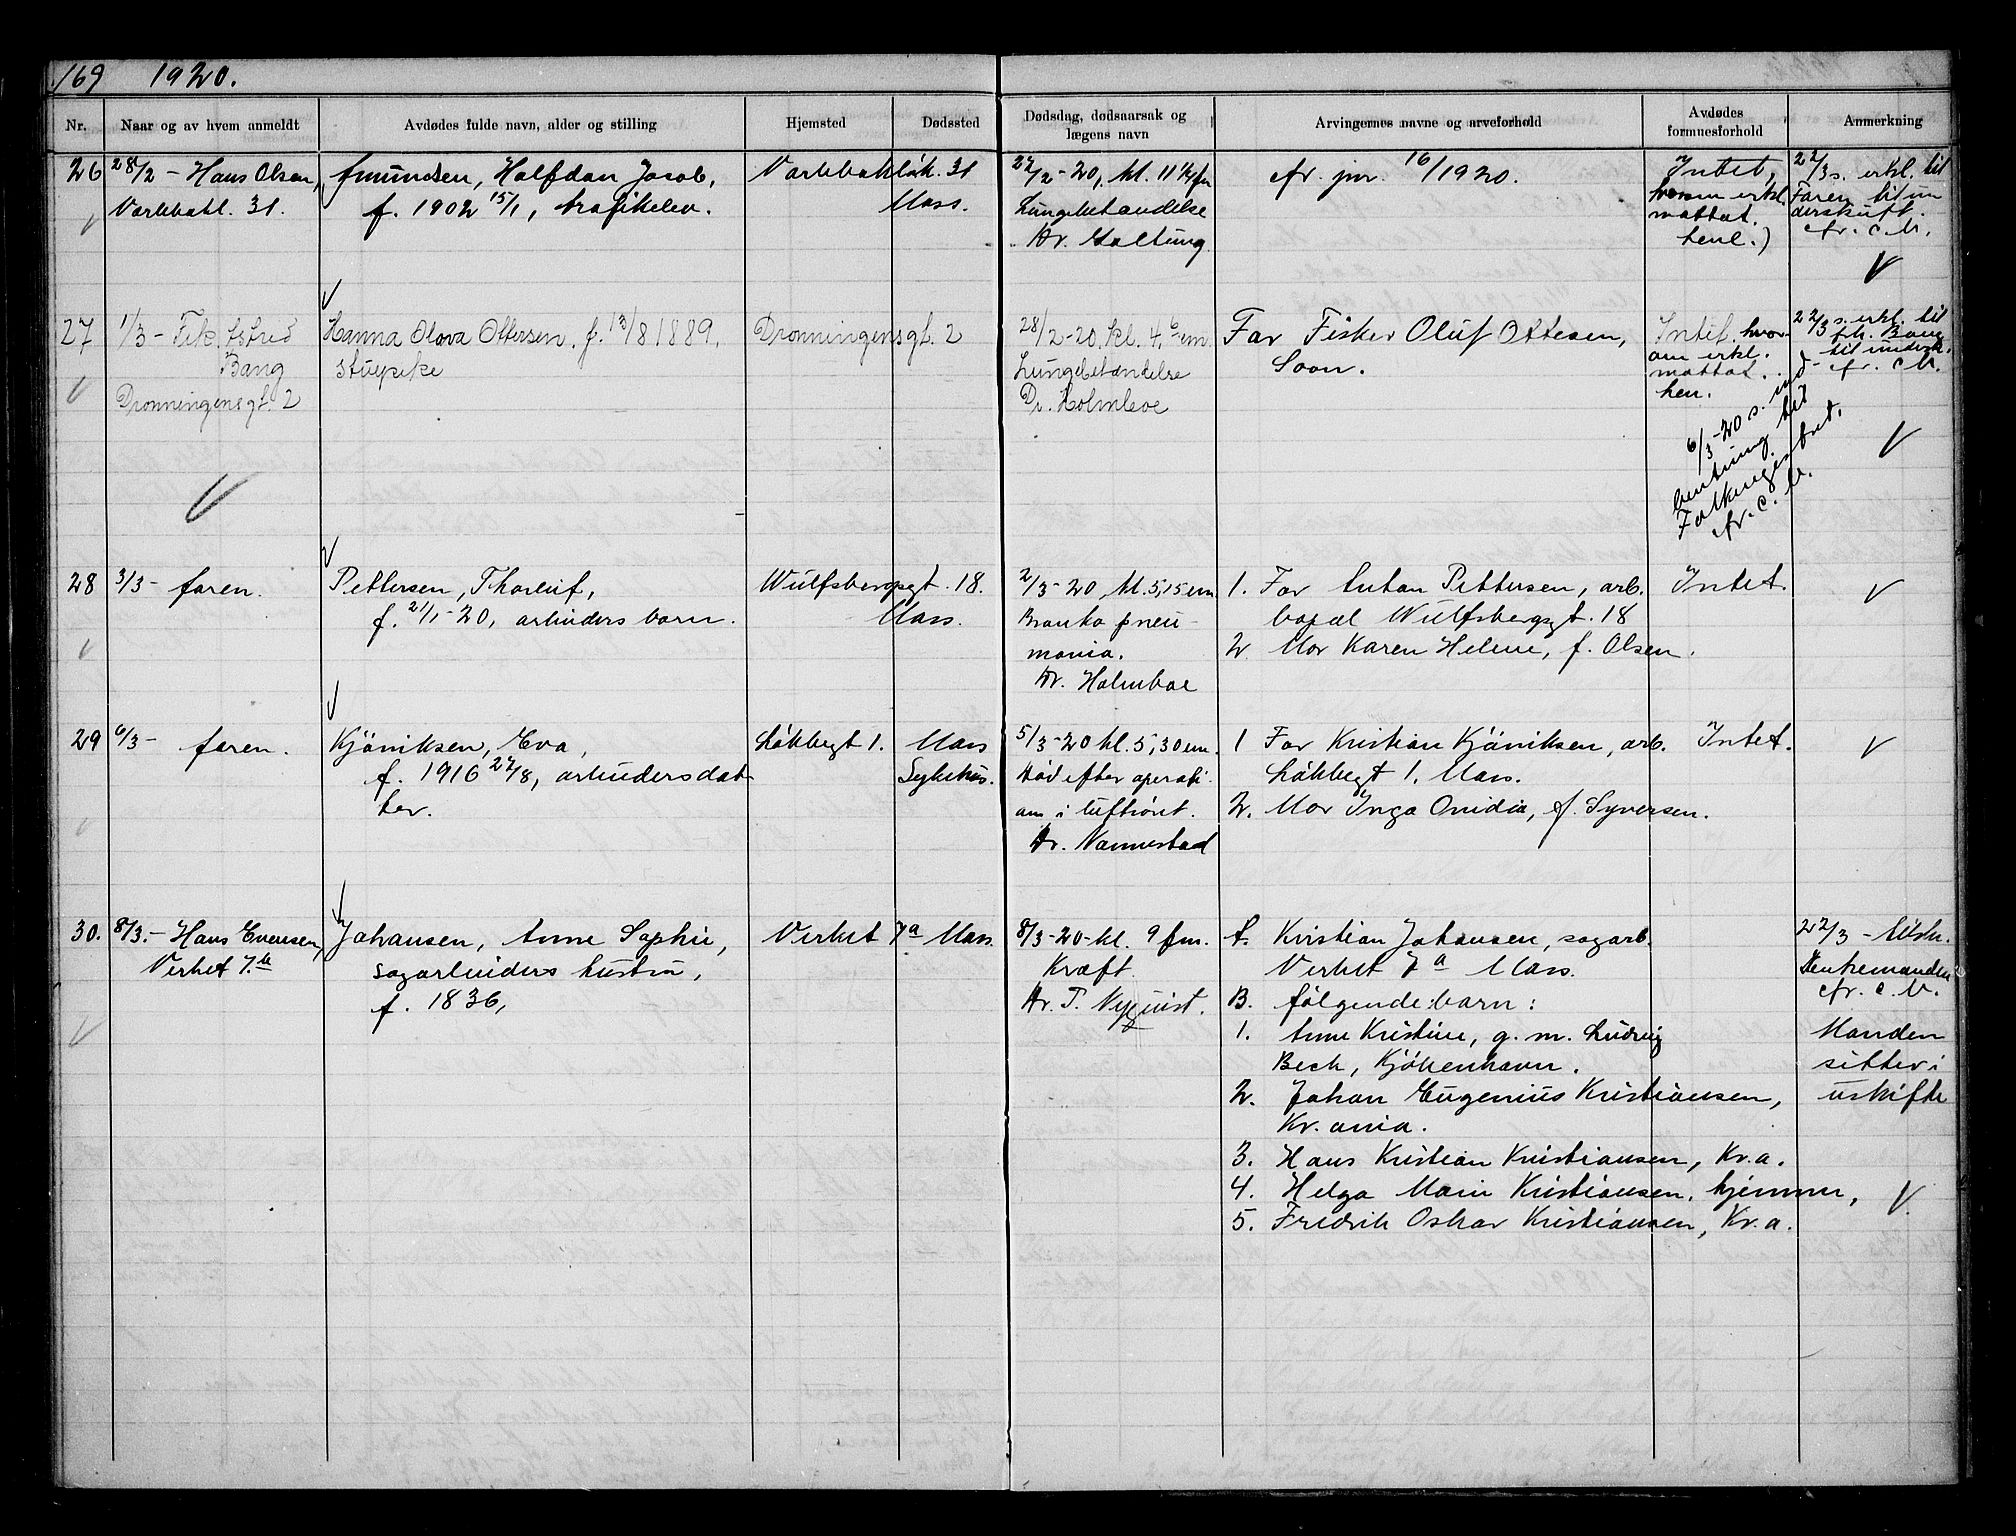 169 1920.
Nr. Naar og av hvem anmeldt Avdødes fulde navn, alder og stilling Hjemsted Dødssted Dødsdag, dødsaarsak og lægens navn Arvingernes navne og arveforhold Avdødes formuesforhold Anmerkning
26 28/2 - Hans Olsen,
Varlebakl. 31.
Amundsen, Halfdan Jacob,
f. 1902 15/1, trafikelev.
Varlebakløk. 31
Moss.
27/2-20, kl. 11 1/2 fm
Lungebetændelse
Dr.
cfr. jnr. 16/1920.
Intet,
hvorom erkl.
mottat.
henl.)
22/3 s. erkl. til
Faren til un
derskrift.
cfr. c. b.
27 1/3 - Frk. Astrid
Bang
Dronningensgt. 2
Hanna Olova Ottersen, f. 13/8 1889,
stuepike
Dronningensgt. 2
28/2-20. kl. 4.6 em.
Lungebetændelse
Dr. Holmboe
Far Fisker Oluf Ottesen,
Soon.
Intet. hvor-
om erkl.
mottat.
hen.
6/3-20 s. ind-
hentning til
Folkregistret.
cfr. c. b.
22/3 s. erkl. til
frk. Bang
til undersk.
cfr. c. b.
28 3/3 - faren.
Pettersen, Thorleif,
f. 21/1-20, arbeiders barn.
Wulfsbergsgt. 18.
Moss.
2/3-20, kl. 5,15 em
Bronko pneu-
monia.
Dr. Holmboe
1. Far Anton Pettersen, arb.
bopæl Wulfsbergsgt. 18
2. Mor Karen Helene, f. Olsen.
Intet.
29 6/3 - faren.
Kjøniksen, Eva,
f. 1916 27/8, arbeiders dat-
ter.
Løkkegt 1. Moss
Sykehus.
5/3-20 kl. 5,30 em.
Død efter operati-
on i luftrøret.
Dr. Vannestad
1 Far Kristian Kjøniksen, arb.
Løkkegt 1. Moss.
2. Mor Inga Ovidia, f. Syversen.
Intet.
30. 8/3. - Hans Evensen,
Verket 7.b
Johansen, Anne Sophie,
sagarbeiders hustru,
f. 1836,
Verket 7a Moss.
8/3-20-kl. 9 fm.
Kræft.
Dr. T. Nyquist.
A. Kristian Johansen, sagarb.
Verket 7a Moss.
B. følgende barn:
1. Anne Kristine, g. m. Ludvig
Bech, Kjøbenhavn.
2. Johan Eugenius Kristiansen,
Kr. ania.
3. Hans Kristian Kristiansen, Kr.a.
4. Helga Marie Kristiansen, hjemme,
5. Fredrik Oskar Kristiansen, Kr.a.
22/3 - tilsk.
Enkemanden
cfr. c. b.
Manden
sitter i
uskifte